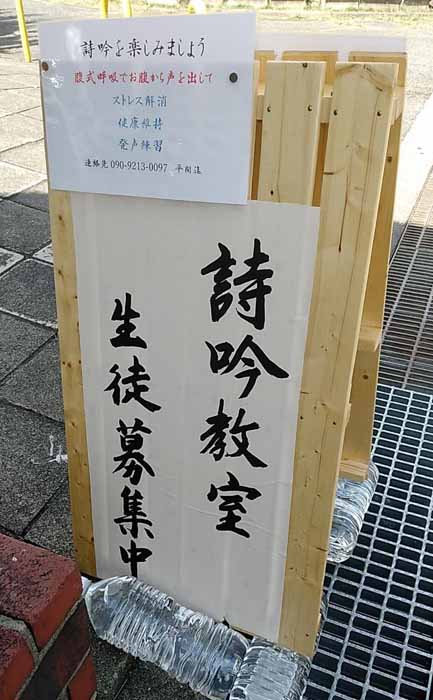 詩吟を楽しみましょう
腹式呼吸でお腹から声を出して
ストレス解消
健康維持
発声練習
連絡先 090-9213-0097 平間滋
詩吟教室
生徒募集中